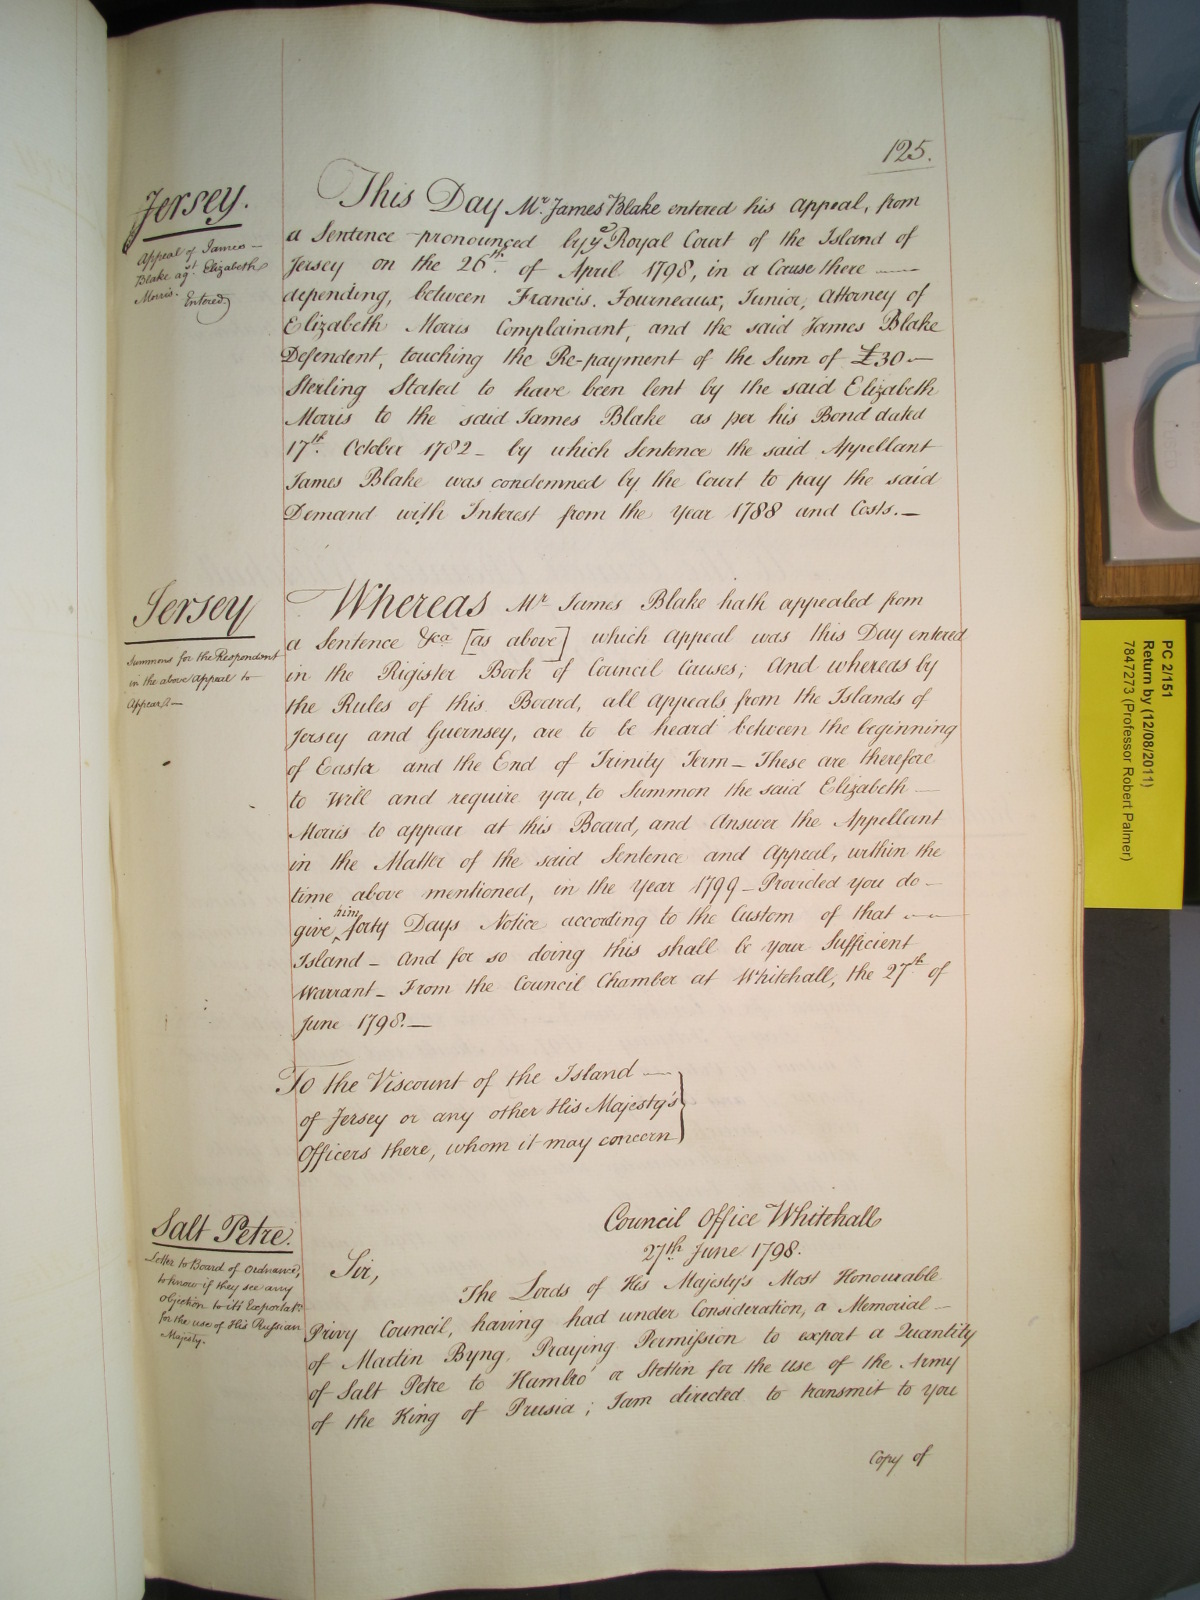 125.
Jersey.
Appeal of James —
Blake agt. Elizabeth
Morris. Entered
This Day Mr. James Blake entered his Appeal, from
a Sentence pronounced by ye Royal Court of the Island of
Jersey on the 26th. of April 1798, in a Cause there —
depending, between Francis. Fourneaux, Junior, Attorney of
Elizabeth Morris Complainant, and the said James Blake
Defendent, touching the Re-payment of the Sum of £30 —
Sterling Stated to have been lent by the said Elizabeth
Morris to the said James Blake as per his Bond dated
17th. October 1782 — by which Sentence the said Appellant
James Blake was condemned by the Court to pay the said
Demand with Interest from the Year 1788 and Costs. —
Jersey
Summons for the Respondent
in the above Appeal to
Appear. —
Whereas Mr James Blake hath appealed from
a Sentence &ca [as above] which Appeal was this Day entered
in the Rigister Book of Council Causes; And whereas by
the Rules of this Board, all Appeals from the Islands of
Jersey and Guernsey, are to be heard between the beginning
of Easter and the End of Trinity Term — These are therefore
to Will and require you, to Summon the said Elizabeth —
Morris to appear at this Board, and Answer the Appellant
in the Matter of the said Sentence and Appeal, within the
time above mentioned, in the Year 1799 — Provided you do —
give him forty Days Notice according to the Custom of that —
Island — And for so doing this shall be your Sufficient
Warrant — From the Council Chamber at Whitehall, the 27th of
June 1798. —
To the Viscount of the Island —
of Jersey or any other His Majesty's
Officers there, whom it may concern
Salt Petre.
Letter to Board of Ordnance,
to know if they see any
Objection to it's Exportatn.
for the use of His Prussian
Majesty.
Council Office Whitehall
27th June 1798.
Sir,
The Lords of His Majesty's Most Honourable
Privy Council, having had under Consideration, a Memorial —
of Martin Byng, Praying Permission to export a Quantity
of Salt Petre to Hambro' or Stettin for the use of the Army
of the King of Prusia; I am directed to transmit to you
Copy of
PC 2/151
Return by (12/08/2011)
7847273 (Professor Robert Palmer)